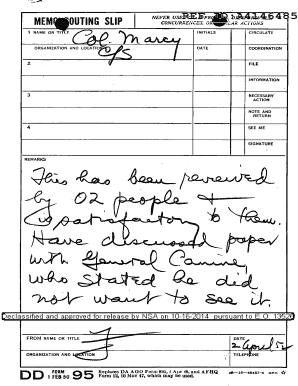 REF ID:A4146485
MEMO ROUTING SLIP
NEVER USE FOR APPROVALS, DISAPPROVALS,
CONCURRENCES, OR SIMILAR ACTIONS
1 NAME OR TITLE Col. Marcy INITIALS CIRCULATE
ORGANIZATION AND LOCATION C/S DATE COORDINATION
2 FILE
INFORMATION
3 NECESSARY
ACTION
NOTE AND
RETURN
4 SEE ME
SIGNATURE
REMARKS
This has been reviewed
by 02 people &
is satisfactory to them.
Have discussed paper
with General Canine,
who stated he did
not want to see it.
Declassified and approved for release by NSA on 10-16-2014 pursuant to E.O. 13526
FROM NAME OR TITLE DATE
2 April 52
ORGANIZATION AND LOCATION TELEPHONE
DD FORM 1 FEB 50 95 Replaces DA AGO Form 895, 1 Apr 48, and AFHQ
Form 12, 10 Nov 47, which may be used.